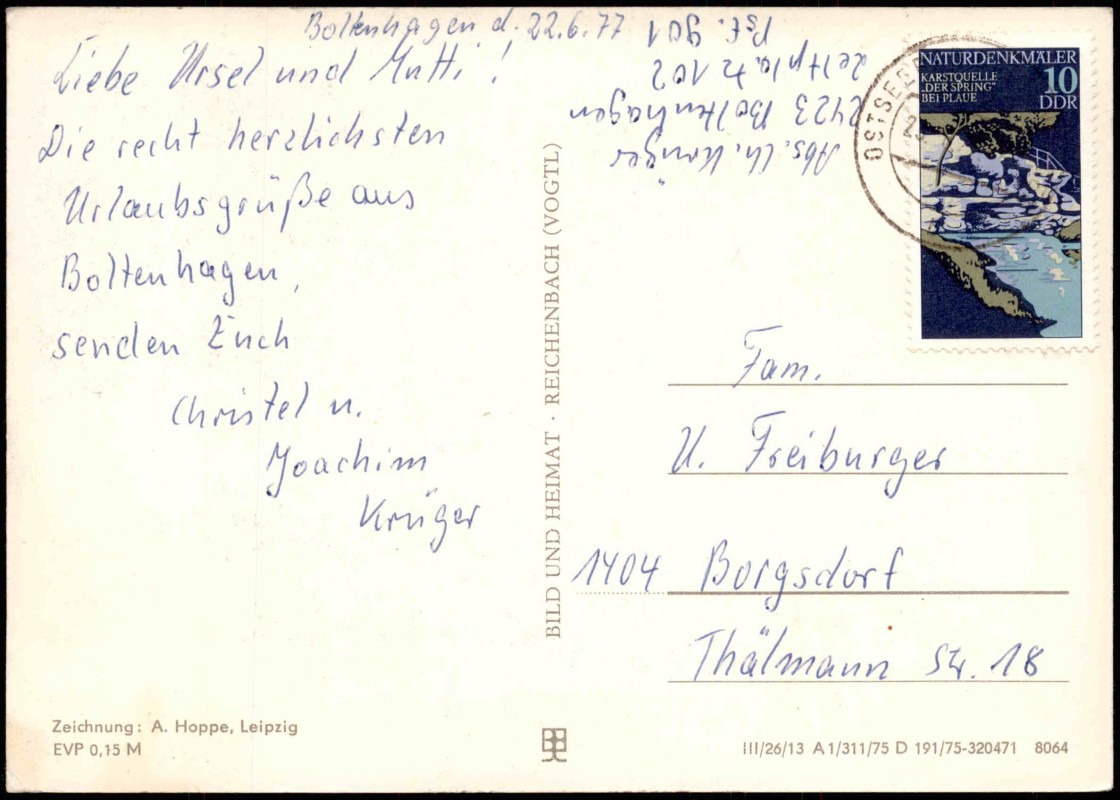 Boltenhagen d. 22.6.77
Liebe Ursel und Mutti!
Die recht herzlichsten
Urlaubsgrüße aus
Boltenhagen,
senden Euch
Christel u.
Joachim
Krüger
Abs. Ch. Krüger
2423 Boltenhagen
Zeltplatz 102
Pst. 901
NATURDENKMÄLER
KARSTQUELLE
„DER SPRING“
BEI PLAUE
10
DDR
OSTSEEB
BILD UND HEIMAT · REICHENBACH (VOGTL)
Fam.
U. Freiburger
1404 Borgsdorf
Thälmann Str. 18
Zeichnung: A. Hoppe, Leipzig
EVP 0,15 M
III/26/13 A 1/311/75 D 191/75-320471 8064